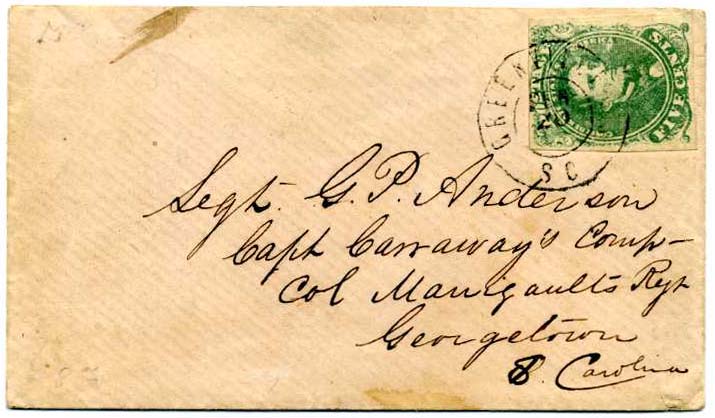 GREENVILLE
S C
FIVE CENTS
Segt. G. P. Anderson
Capt Carraway's Comp-
Col Manigaults Regt
Georgetown
S. Carolina